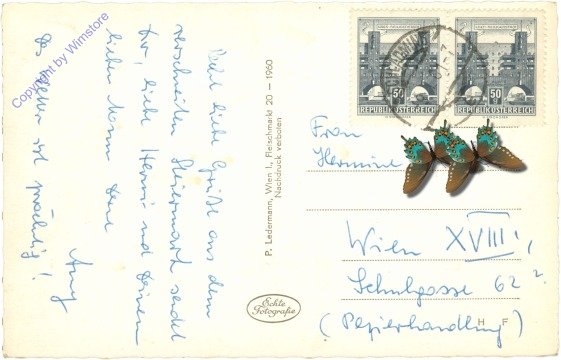 Recht liebe Grüße aus dem
verschneiten Steiermark sendet
Dir, liebe Hermi und Deinem
lieben Mann Deine
Amy
Das Wetter ist prächtig!
Copyright by Wimstore
P. Ledermann, Wien I., Fleischmarkt 20 – 1960
Nachdruck verboten
Echte
Fotografie
50 50
REPUBLIK ÖSTERREICH REPUBLIK ÖSTERREICH
Frau
Hermine
Wien XVIII,
Schulgasse 62
(Papierhandlung)
H F